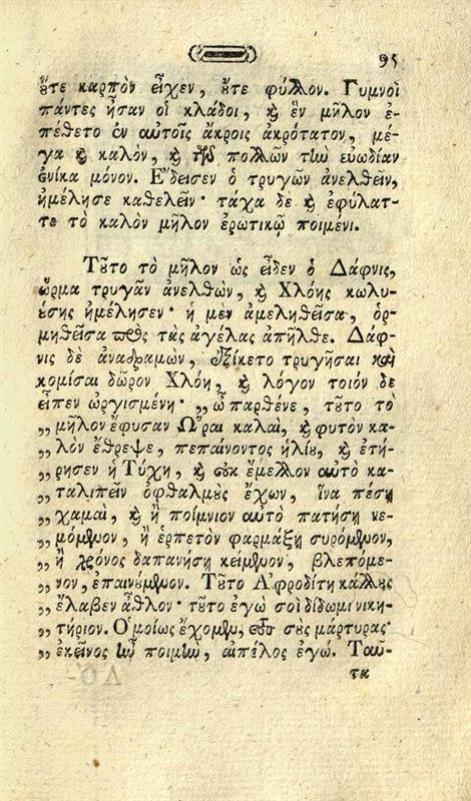 95
ὔτε καρπὸν εἶχεν, ὔτε φύλλον. Γυμνοὶ
πάντες ἦσαν οἱ κλάδοι, ϗ ἓν μῆλον ἐ-
πέθετο ἐν αὐτοῖς ἄκροις ἀκρότατον, μέ-
γα ϗ καλὸν, ϗ τῶν πολλῶν τὴν εὐωδίαν
ἐνίκα μόνον. Ἔδεισεν ὁ τρυγῶν ἀνελθεῖν,
ἠμέλησε καθελεῖν· τάχα δὲ ϗ ἐφύλατ-
τε τὸ καλὸν μῆλον ἐρωτικῷ ποιμένι.
Τῦτο τὸ μῆλον ὡς εἶδεν ὁ Δάφνις,
ὥρμα τρυγᾶν ἀνελθὼν, ϗ Χλόης κωλυ-
ύσης ἠμέλησεν· ἡ μὲν ἀμεληθεῖσα, ὁρ-
μηθεῖσα πρὸς τὰς ἀγέλας ἀπῆλθε. Δάφ-
νις δὲ ἀναδραμὼν, ἐξίκετο τρυγῆσαι καὶ
κομίσαι δῶρον Χλόῃ, ϗ λόγον τοιόν δε
εἶπεν ὠργισμένῃ· „ ὦ παρθένε, τῦτο τὸ
„ μῆλον ἔφυσαν Ὧραι καλαὶ, ϗ φυτὸν κα-
„ λὸν ἔθρεψε, πεπαίνοντος ἡλίυ, ϗ ἐτή-
„ ρησεν ἡ Τύχη, ϗ οὐκ ἔμελλον αὐτὸ κα-
„ ταλιπεῖν ὀφθαλμὺς ἔχων, ἵνα πέσῃ
„ χαμαὶ, ϗ ἢ ποίμνιον αὐτὸ πατήσῃ νε-
„ μόμενον, ἢ ἑρπετὸν φαρμάξῃ συρόμενον,
„ ἢ χρόνος δαπανήσῃ κείμενον, βλεπόμε-
„ νον, ἐπαινύμενον. Τῦτο Ἀφροδίτη κάλλυς
„ ἔλαβεν ἆθλον· τῦτο ἐγὼ σοὶ δίδωμι νικη-
„ τήριον. Ὁμοίως ἔχομεν, τὺς σὺς μάρτυρας·
„ ἐκεῖνος ἦν ποιμὴν, αἰπόλος ἐγώ. Ταῦ-
τα